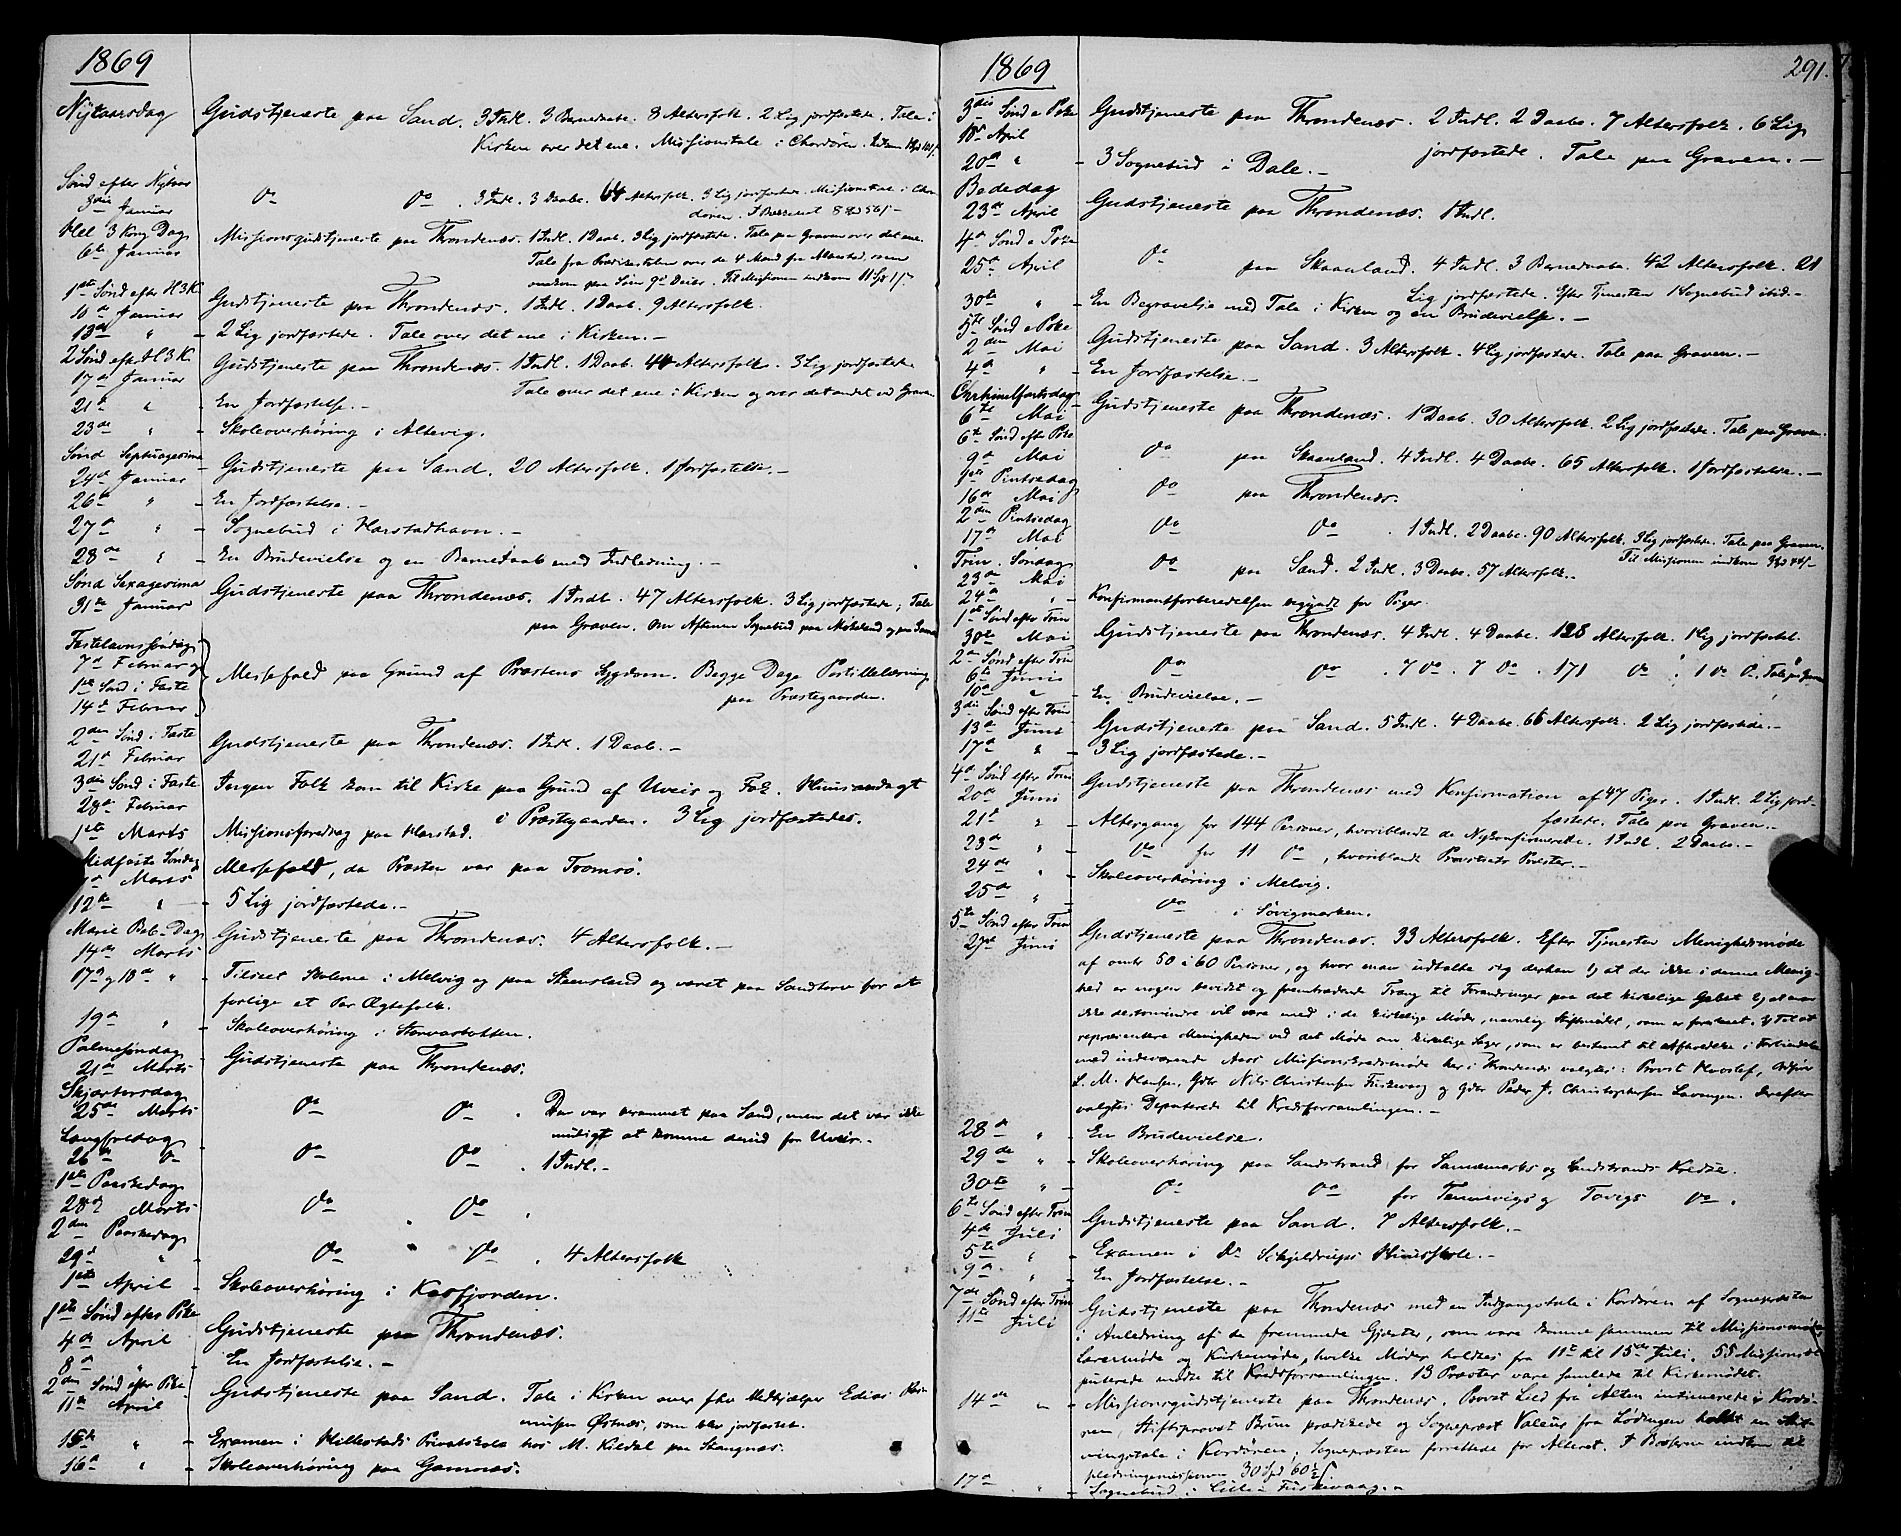 1869
Nÿtaarsdag Gudstjeneste paa Sand. 3 Indl. 3 Barnedaabe. 8 Altersfolk. 2 Lig jordfæstede. Tale i
Kirken over det ene. Missionstale i Chordøren.
Sønd efter Nytaar
3die Januar do do. 3 Indl. 3 Daabe. 64 Altersfolk. 3 Lig jordfæstede. Missionstale i Chor
døren.
Hel 3 Kong Dag
6te Januar Missionsgudstjeneste paa Throndenæs. 1 Indl. 1 Daab. 3 Lig jordfæstede. Tale paa Graven over det ene.
Tale fra Prædikestolen over de 4 Mænd fra Maastad, som
omkom paa Søen 9de Decbr. Til Missionen indkom 11 Sp
1ste Sønd efter H 3 K
10de Januar Gudstjeneste paa Throndenæs. 1 Indl. 1 Daab. 9 Altersfolk.
13de " - 2 Lig jordfæstede. Tale over det ene i Kirken.-
2 Sønd efter H 3 K.
17de Januar Gudstjeneste paa Throndenæs. 1 Indl. 1 Daab. 44 Altersfolk. 3 Lig jordfæstede
Tale over det ene i Kirken og over det andet ved Graven
21de " - En Jordfæstelse.-
23de " - Skoleoverhøring i Altevig.
Sønd Septuagesima
24de Januar - Gudstjeneste paa Sand. 20 Altersfolk. 1 Jordfæstelse.-
26de " - En Jordfæstelse.-
27de " - Sognebud i Harstadhavn.-
28de " - En Brudevielse og en Barnedaab med Indledning.-
Sønd Sexagesima
31te Januar Gudstjeneste paa Throndenæs. 1 Indl. 47 Altersfolk. 3 Lig jordfæstede; Tale
paa Graven. Om Aftenen Sognebud paa
Fastelavnssøndag
7de Februar og
1ste Sønd i Faste
14de Februar Messefald paa Grund af Præstens Sygdom. Begge Dage Postillelæsning
paa Præstegaarden.
2den Sønd i Faste
21de Februar Gudstjeneste paa Throndenæs. 1 Indl. 1 Daab.-
3die Sønd i Faste
28de Februar Ingen Folk kom til Kirke paa Grund af Uveir og Fok. Huusandagt
i Præstegaarden. 3 Lig jordfæstedes.
1ste Marts Missionsforedrag paa Harstad.
Midfaste Søndag
Marts Messefald, da Præsten var paa Tromsø.
12te " - 5 Lig jordfæstede.-
Marie Beb. Dag
14de Marts Gudstjeneste paa Throndenæs. 4 Altersfolk.-
17de og 18de " - Tilseet Skolerne i Melvig og paa Steensland og været paa Sandtorv for at
forlige et Par Ægtefolk.
19de " - Skoleoverhøring i Storvasbotten.
Palmesøndag
21de Marts - Gudstjeneste paa Throndenæs.
Skjærtorsdag
25de Marts do do. Der var berammet paa Sand, men det var ikke
muligt at komme derud for Uveir.-
Langfredag
26de do- do do. 1 Indl.-
1ste Paaskedag
28de Marts do do.
2den Paaskedag
29de " - do do. 4 Altersfolk
1ste April - Skoleoverhøring i Kasfjorden.
1ste Sønd efter Pske
4de April Gudstjeneste paa Throndenæs.
8de " - En Jordfæstelse.-
2den Sønd efter Pske
11te April Gudstjeneste paa Sand. Tale i Kirken over fhv Medhjælper Edias
Østnæs, som blev jordfæstet.
15de " - Examen i Hillestads Privatskole hos M. Kildal paa Stangnæs.
16de " - Skoleoverhøring paa Gamnæs.
1869 291.
3die Sønd e Pske
18de April Gudstjeneste paa Throndenæs. 2 Indl. 2 Daabe. 7 Altersfolk. 6 Lig
jordfæstede. Tale paa Graven.-
20de " - 3 Sognebud i Dale.-
Bededag
23de April Gudstjeneste paa Throndenæs. 1 Indl.
4de Sønd e Pske
25de April do paa Skaanland. 4 Indl. 3 Barnedaabe. 42 Altersfolk. 21
Lig jordfæstede. Efter Tjenesten 1 Sognebud ibid.-
30te " - En Begravelse med Tale i Kirken og en Brudevielse.-
5te Sønd e Pske
2den Mai Gudstjeneste paa Sand. 3 Altersfolk. 4 Lig jordfæstede. Tale paa Graven.-
4de " - En Jordfæstelse.-
Chrhimelfartsdag
6te Mai Gudstjeneste paa Throndenæs. 1 Daab. 30 Altersfolk. 2 Lig jordfæstede. Tale paa Graven.
6te Sønd efter Pske
9de Mai do paa Skaanland. 4 Indl. 4 Daabe. 65 Altersfolk. 1 Jordfæstelse.-
1ste Pintsedag
16de Mai do paa Throndenæs.
2den Pintsedag
17de Mai do do. 1 Indl. 2 Daabe. 90 Altersfolk. 3 Lig jordfæstede. Tale paa Graven.
Til Missionen indkom
Trin. Søndag
23de Mai do paa Sand. 2 Indl. 3 Daabe. 57 Altersfolk.
24de " - Konfirmantforberedelsen begyndt for Piger.
1ste Sønd efter Trin
30te Mai Gudstjeneste paa Throndenæs. 4 Indl. 4 Daabe. 128 Altersfolk. 1 Lig jordfæstet.
2den Sønd efter Trin
6te Juni do do. 7 do. 7 do. 171 do. 1 do do. Tale paa Graven
10de " - En Brudevielse.-
3die Sønd efter Trin
13de Juni Gudstjeneste paa Sand. 5 Indl. 4 Daabe. 66 Altersfolk. 2 Lig jordfæstede.-
17de " - 3 Lig jordfæstede.-
4de Sønd efter Trin
20de Juni Gudstjeneste paa Throndenæs med Konfirmation af 47 Piger. 1 Indl. 2 Lig jord-
fæstede. Tale paa Graven.-
21de " - Altergang for 144 Personer, hvoriblandt de Nykonfirmerede. 1 Indl. 2 Daabe.-
23de " - do for 11 do, hvoriblandt Provstiets Præster.-
24de " - Skoleoverhøring i Melvig.
25de " - do i Søvigmarken.
5te Sønd efter Trin
27de Juni Gudstjeneste paa Throndenæs. 33 Altersfolk. Efter Tjenesten Menighedsmøde
af omtr 50 à 60 Personer, og hvor man udtalte sig derhen 1) at der ikke i denne Menig-
hed er nogen bevidst og fremtrædende Trang til Forandringer paa det kirkelige Gebet 2) at man
ikke destomindre vil være med i de kirkelige Møder, navnlig Stiftsmødet, som er foreslaaet. 3) Til at
repræsentere Menigheden ved det Møde om kirkelige Sager, som er bestemt til Afholdelse i Forbindelse
med indeværende Aars Missionskredsmøde her i Throndenæs valgtes: Provst Hvoslef,
L. M. Hansen, Gbr Nils Christensen Fuskevaag og Gbr Peder J. Christophersen Lavangen. Derefter
valgtes Deputerede til Kredsforsamlingen.-
28de " - En Brudevielse.
29de " - Skoleoverhøring paa Sandstrand for Sandemarks og Sandstrands Kredse.
30te " - do do for Tennevigs og Tovigs do.
6te Sønd efter Trin
4de Juli Gudstjeneste paa Sand. 7 Altersfolk.-
5te " - Examen i Dr. Schjeldrups Huusskole.-
9de " - En Jordfæstelse.-
7de Sønd efter Trin
11te Juli Gudstjeneste paa Throndenæs med en Indgangstale i Kordøren af Sognepræsten
i Anledning af de fremmede Gjæster, som vare komne sammen til Missionsmøde,
Lærermøde og Kirkemøde, hvilke Møder holdtes fra 11te til 15de Juli. 55 Missionsde-
puterede mødte til Kredsforsamlingen. 13 Præster vare samlede til Kirkemødet.
14de " - Missionsgudstjeneste paa Throndenæs. Provst Lied fra Alten intimerede i Kordø-
ren, Stiftsprovst Brun prædikede og Sognepræst Valeur fra Lødingen holdt en Slut
ningstale i Kordøren; Sognepræsten forrettede for Alteret. I Bøssen indkom til
Hedningemissionen 30 Spd 60½ ß.
17de " - Sognebud i Lille-Fuskevaag.-